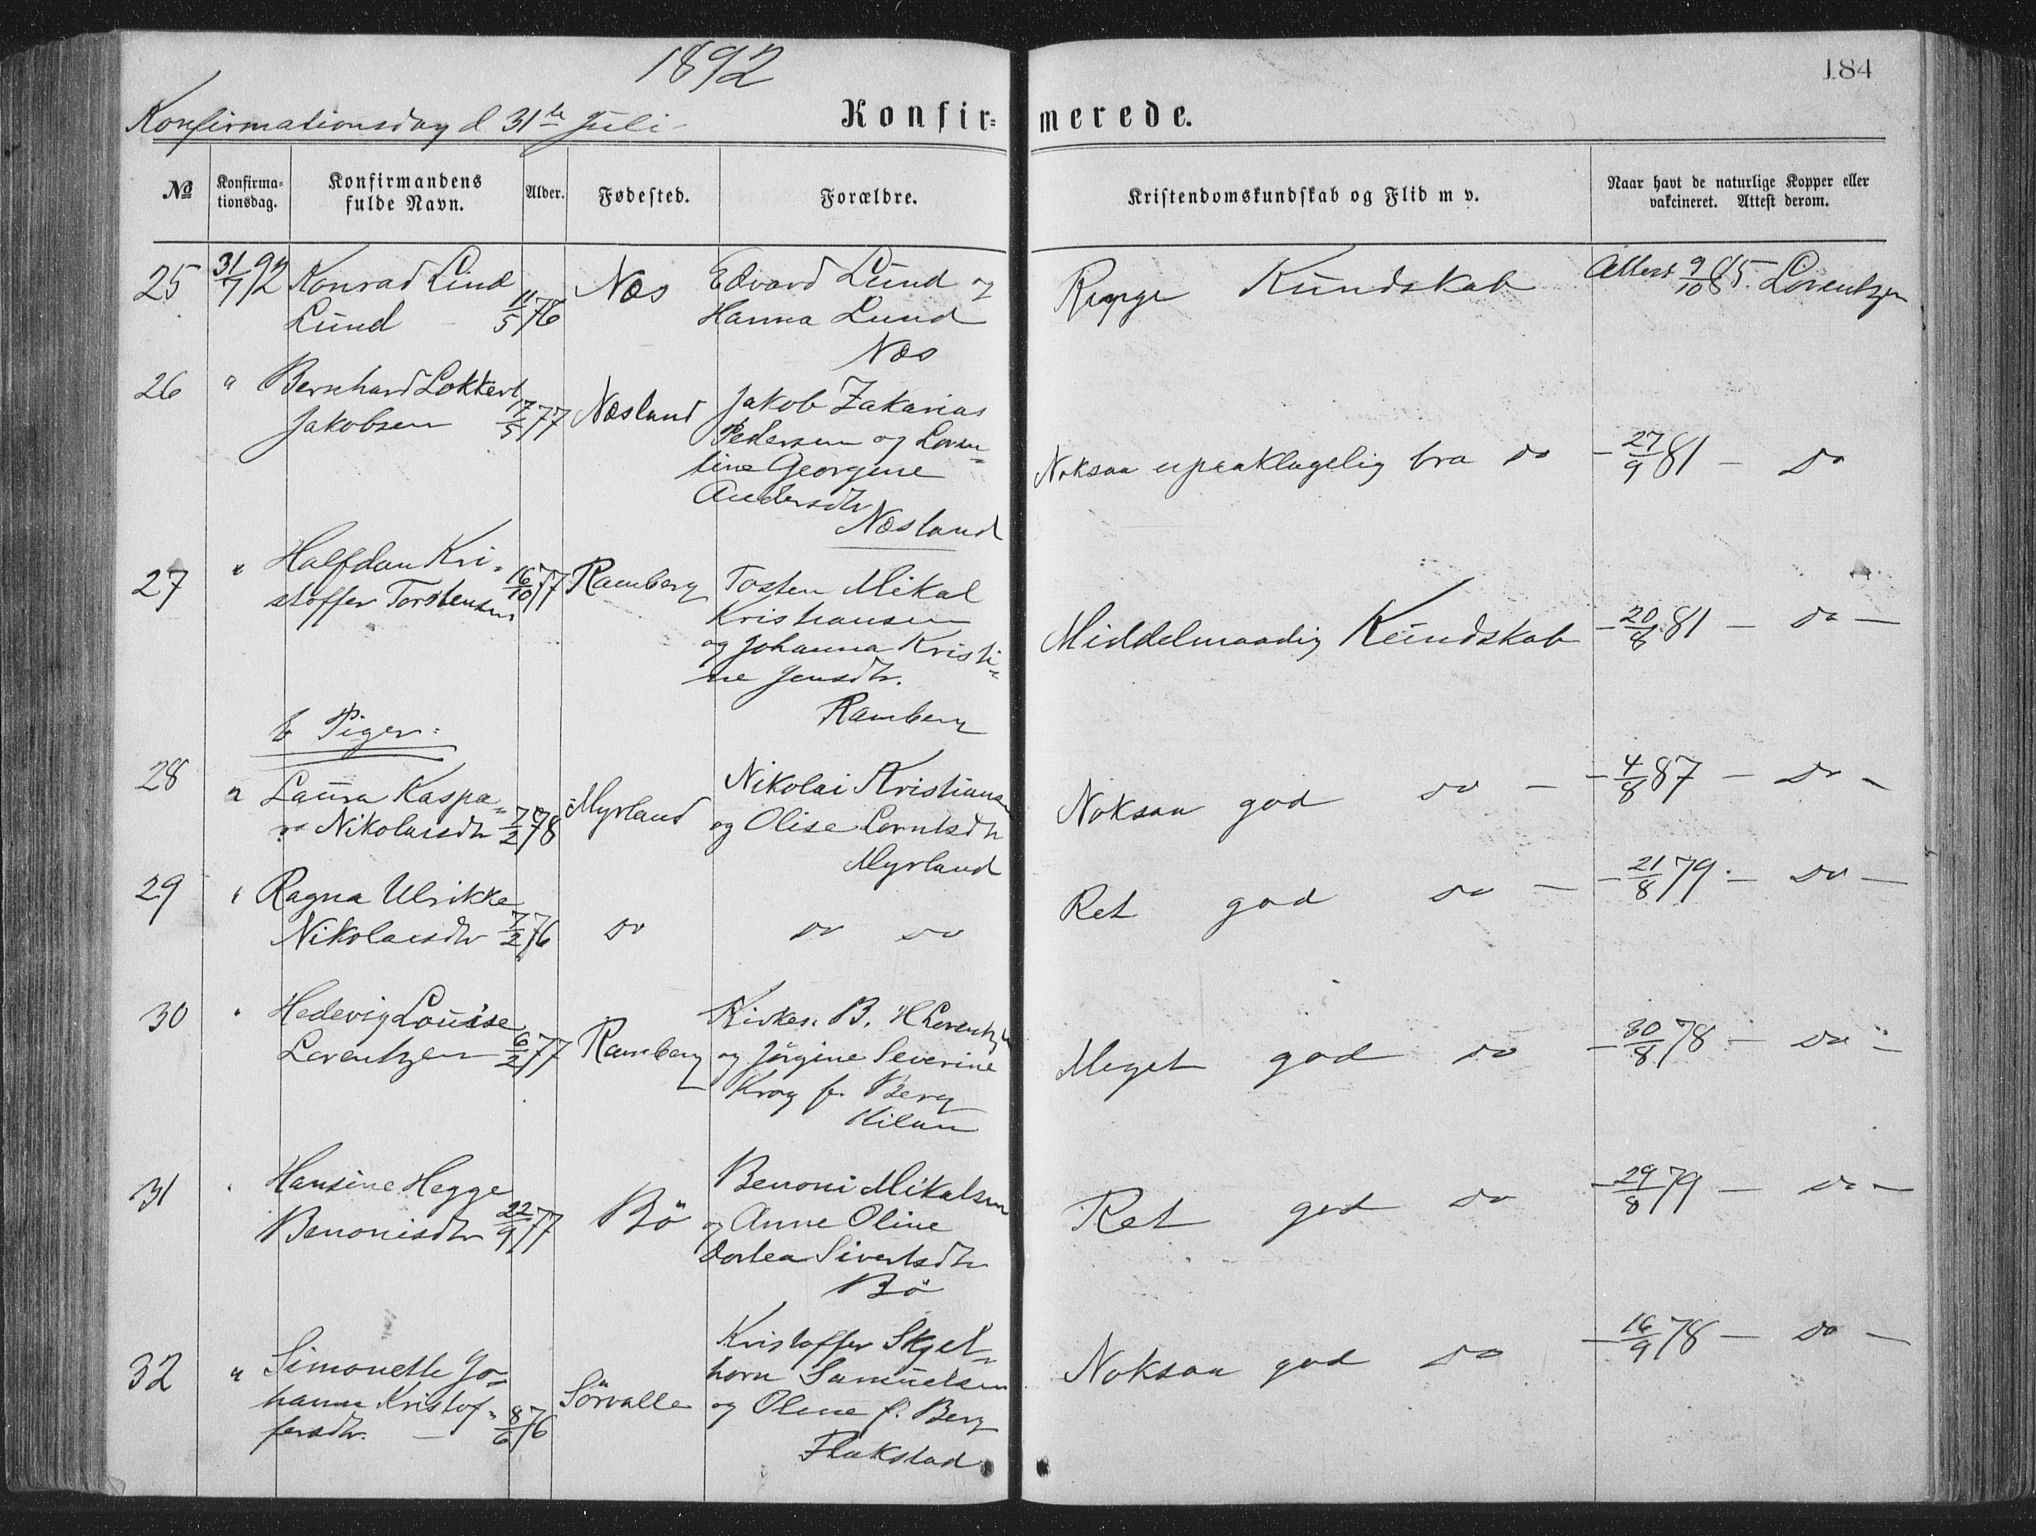 1892
184
Konfirmationsdag d 31te Juli
Konfir-merede.
№ Konfirma-tionsdag. Konfirmandens fulde Navn. Alder. Fødested. Forældre. Kristendomskundskab og Flid m v. Naar havt de naturlige Kopper eller vakcineret. Attest derom.
25 31/7 92 Konrad Lind Næs Edvard Lund og Kundskab Attest 9/10 85. Lorentzen
Lund 11/5 76 Hanna Lund
Næs
26 " Bernhard Lokkert Næsland Jakob Zakarias
Jakobsen 17/5 77 Pedersen og Loren-
tine Georgine Noksaa upaaklagelig bra do - 27/9 81 - Do
Andersdtr
Næsland
27 " Halfdan Kri- 16/10 77 Ramberg Tosten Mikal
stoffer Torstensen Kristiansen
og Johanna Kristi- Middelmaadig Kundskab - 20/8 81 - Do -
ne Jensdtr.
Ramberg
b Piger:
28 " Laura Kaspa- Myrland Nikolai Kristiansen
ra Nikolaisdtr 7/2 78 og Olise Lorntsdtr Noksaa god do - - 4/8 87 - Do -
Myrland
29 " Ragna Ulrikke Ret god do - - 21/8 79 - Do -
Nikolaisdtr 7/2 76 do do do
30 " Hedevig Louise Kirkes. B. H Lorentzen
Lorentzen 6/2 77 Ramberg og Jørgine Severine Meget god do - 30/8 78 - Do -
Krog f. Berg
Kilan
31 " Hansine Hegge Benoni Mikalsen
Benonisdtr 22/9 77 Bö og Anne Oline Ret god do - 29/8 79 - Do -
Dortea Sivertsdtr
Bö
32 " Simonette Jo- Kristoffer Skjet-
hanna Kristof- Sörvalle horn Samuelsen Noksaa god do - 16/9 78 - Do -
fersdtr. - 8/6 76 og Oline f. Berg
Flakstad